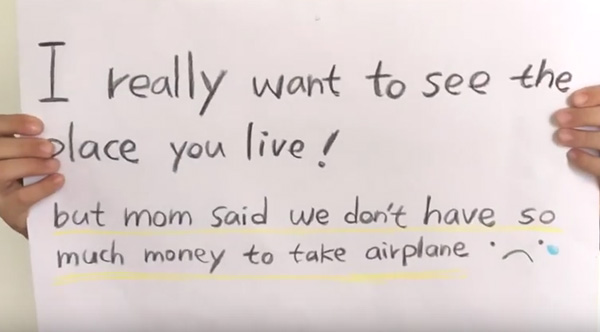 I really want to see the
place you live!
but mom said we don't have so
much money to take airplane